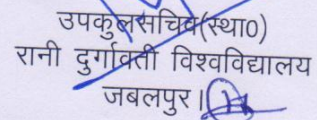 उपकुलसचिव(स्था0)
रानी दुर्गावती विश्वविद्यालय
जबलपुर।